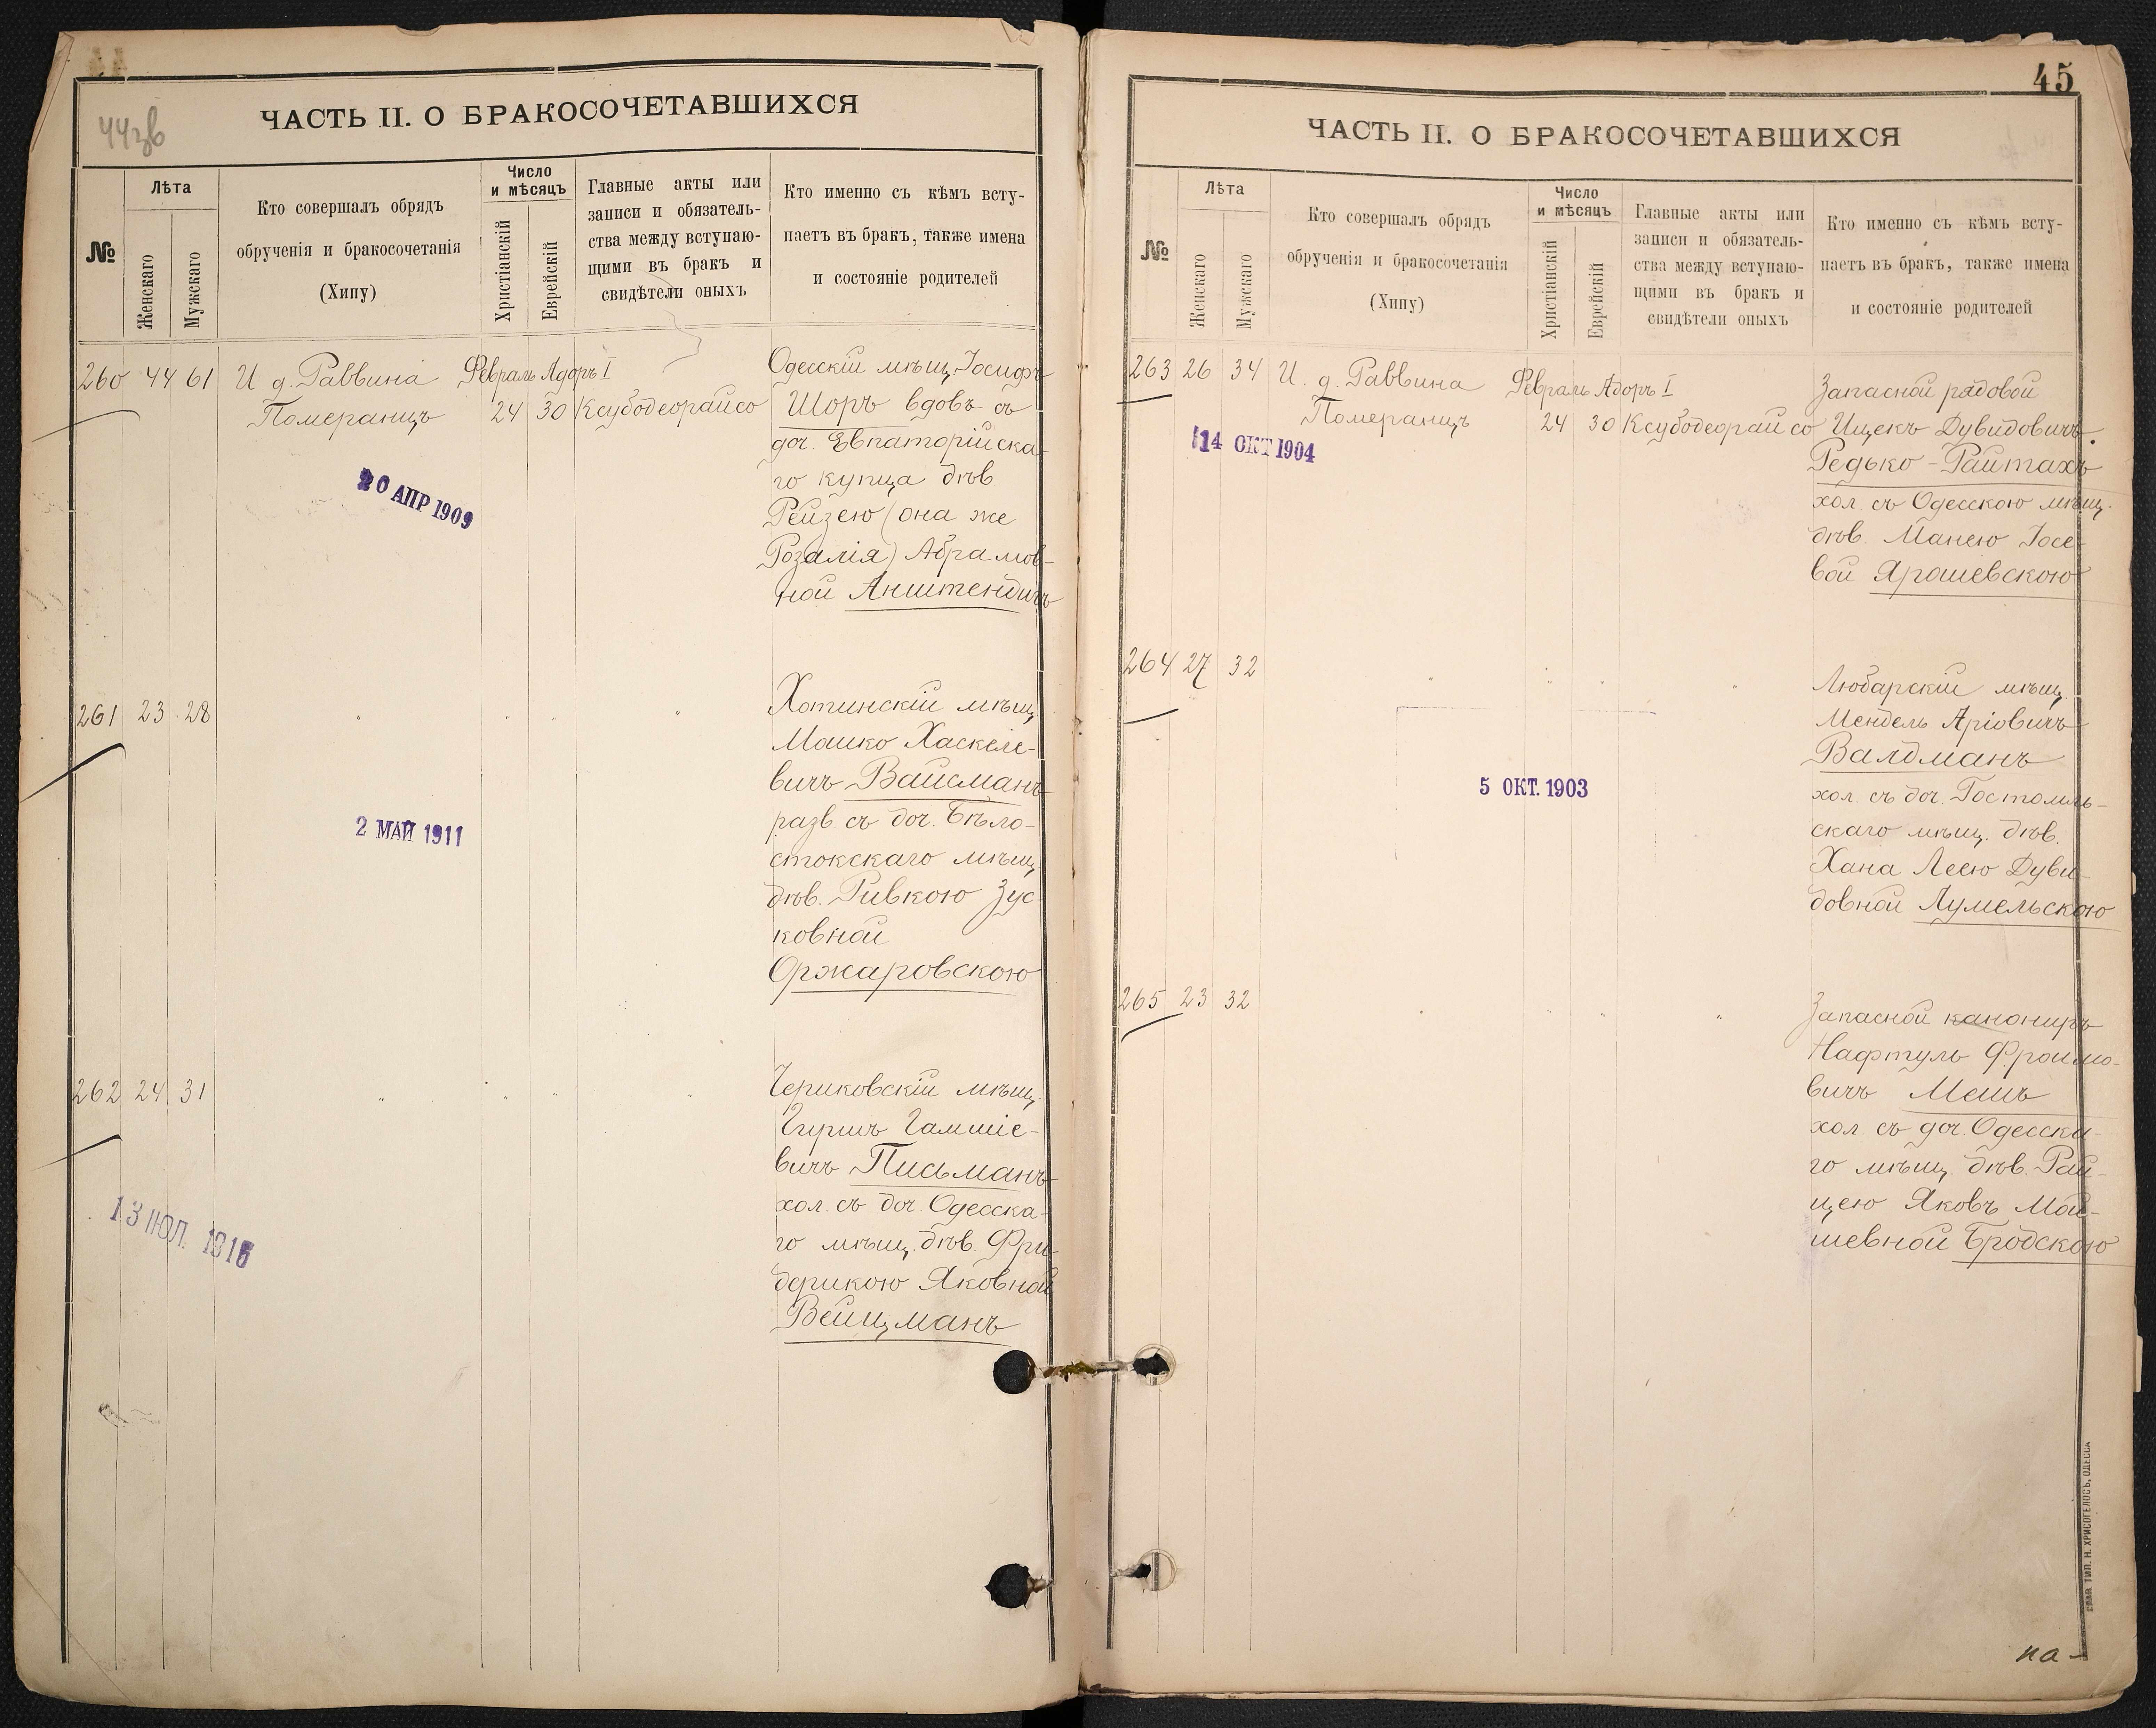 44зв
ЧАСТЬ II. О БРАКОСОЧЕТАВШИХСЯ
№
Лѣта
Женскаго
Мужскаго
Кто совершалъ обрядъ
обрученія и бракосочетанія
(Хипу)
Число
и мѣсяцъ
Христіанскій
Еврейскій
Главные акты или
записи и обязатель-
ства между вступаю-
щими въ бракъ и
свидѣтели оныхъ
Кто именно съ кѣмъ всту-
паетъ въ бракъ, также имена
и состояніе родителей
260 44 61 И д. Раввина Февраль Адоръ I
Померанцъ 24 30 Ксубодеорайсо
Одесскій мѣщ. Іосифъ
Шоръ вдовъ съ
доч. Евпаторійска-
го купца дѣв
Рейзею (она же
Розалія) Абрамов-
ной Анштендигъ
20 АПР 1909
261 23 28 " " " "
Хотинскій мѣщ.
Мошко Хаскеле-
вичъ Вайсманъ
разв. съ доч. Бѣло-
стокскаго мѣщ.
дѣв. Ривкою Зус-
ковной
Оржаровскою
2 МАЙ 1911
262 24 31 " " " "
Чериковскій мѣщ.
Гиршъ Гамшіе-
вичъ Письманъ
хол. съ доч. Одесска-
го мѣщ. дѣв. Фри-
дерикою Яковной
Вейцманъ
13 ІЮЛ. 1915
45
ЧАСТЬ II. О БРАКОСОЧЕТАВШИХСЯ
№
Лѣта
Женскаго
Мужскаго
Кто совершалъ обрядъ
обрученія и бракосочетанія
(Хипу)
Число
и мѣсяцъ
Христіанскій
Еврейскій
Главные акты или
записи и обязатель-
ства между вступаю-
щими въ бракъ и
свидѣтели оныхъ
Кто именно съ кѣмъ всту-
паетъ въ бракъ, также имена
и состояніе родителей
263 26 34 И. д. Раввина Февраль Адоръ I
Померанцъ 24 30 Ксубодеорайсо
Запасной рядовой
Ицекъ Дувидовичъ
Редько-Райтахъ
хол. съ Одесскою мѣщ.
дѣв. Манею Іосе-
вой Ярошевскою
14 ОКТ 1904
264 27 32 " " " "
Любарскій мѣщ.
Мендель Аріовичъ
Валдманъ
хол. съ доч. Гостомль-
скаго мѣщ. дѣв.
Хана Леею Дуви-
довной Лумельскою
5 ОКТ. 1903
265 23 32 " " " "
Запасной канониръ
Нафтуль Фроимо-
вичъ Мешъ
хол. съ доч. Одесска-
го мѣщ. дѣв. Рай-
цею Яковъ Мой-
шевной Бродскою
СЛАВ. ТИП. Н. ХРИСОГЕЛОСЪ, ОДЕССА
на-